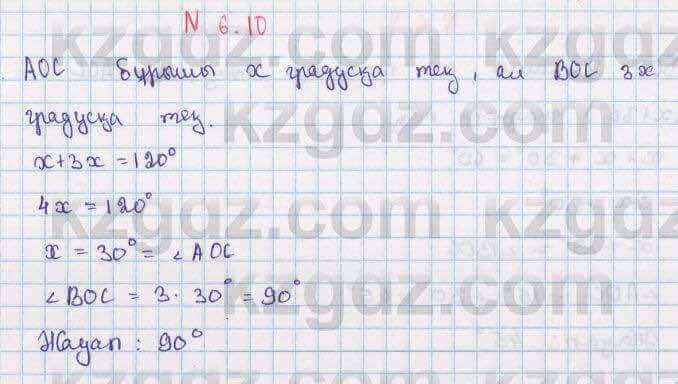 N 6.10
AOC бұрышы x градусқа тең, ал BOC 3x
градусқа тең.
x+3x=120°
4x=120°
x=30°=∠AOC
∠BOC = 3·30°=90°
Жауап: 90°
kzgdz.com
kzgdz.com
kzgdz.com
kzgdz.com